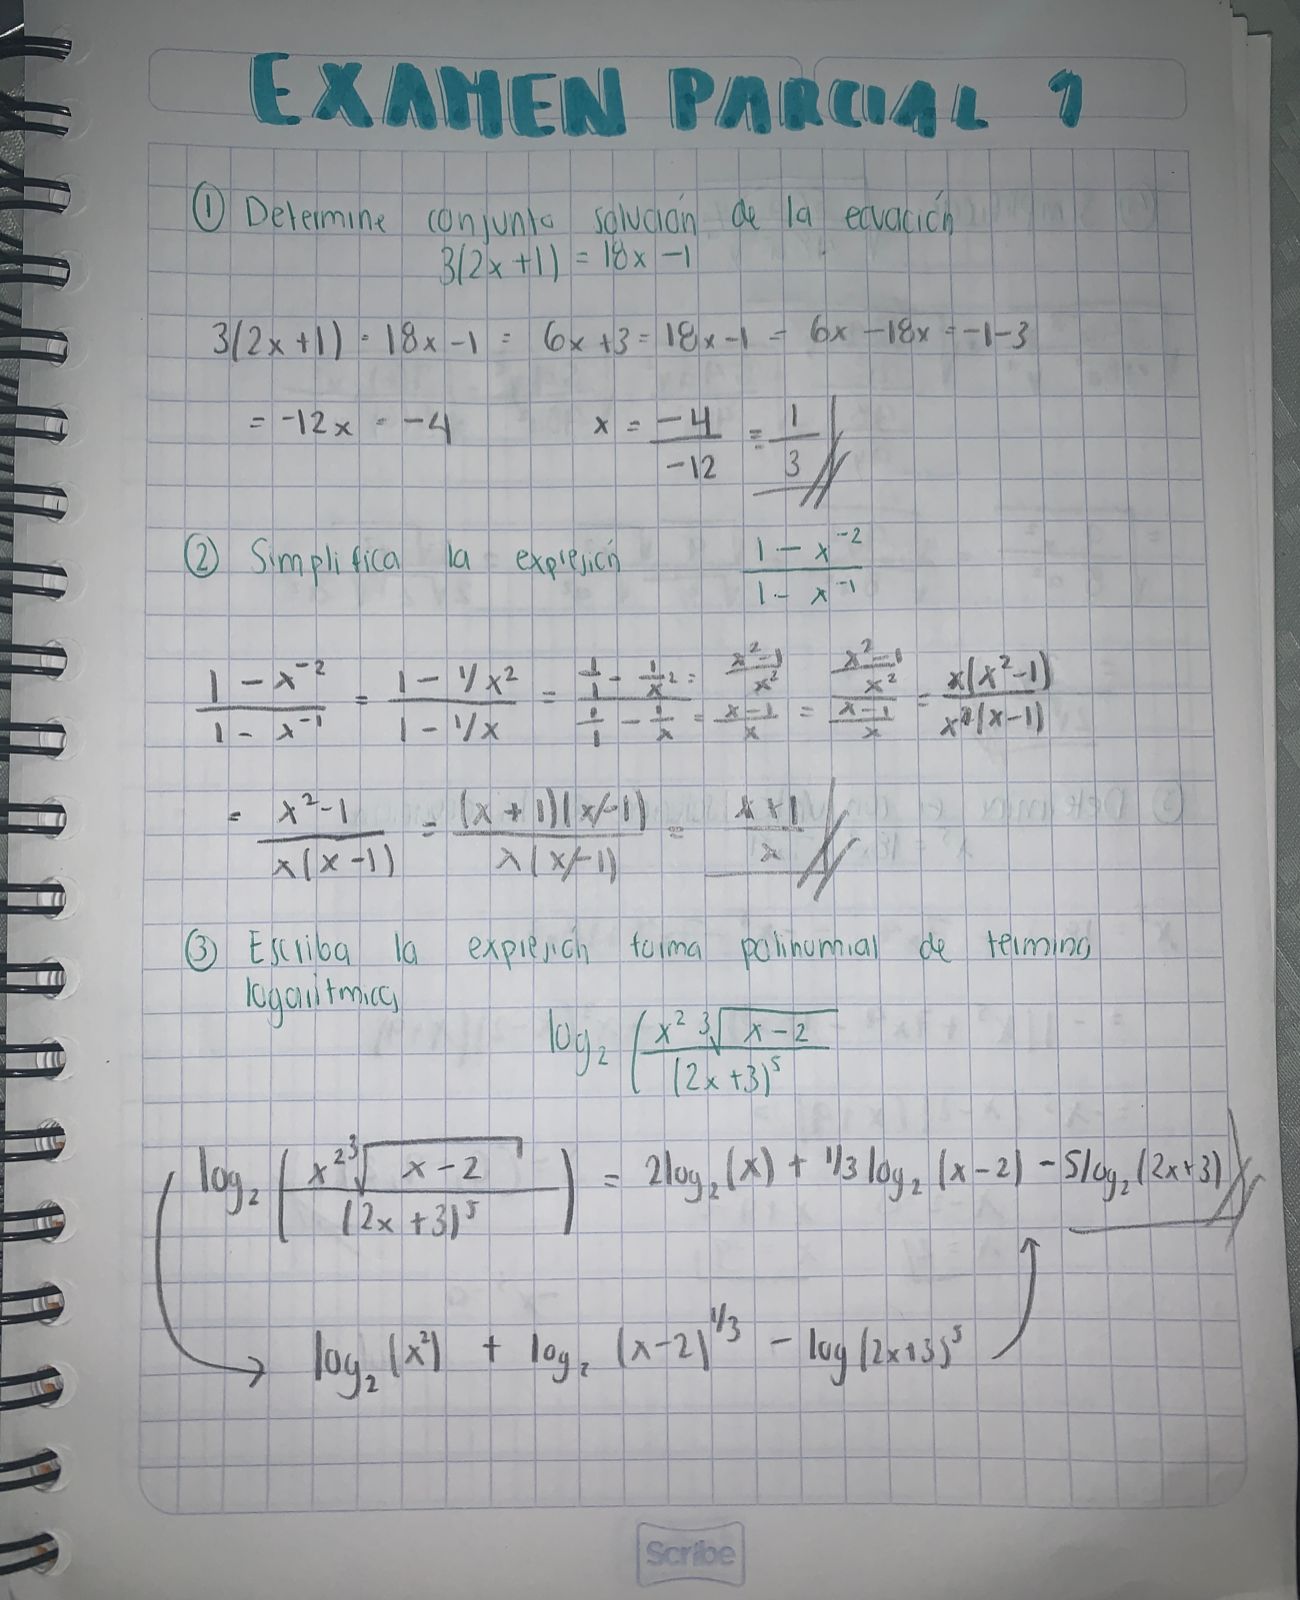 EXAMEN PARCIAL 1
① Determine conjunto solución de la ecuación
3(2x+1) = 18x-1
3(2x+1) = 18x-1 = 6x+3 = 18x-1 = 6x-18x = -1-3
= -12x = -4 x = -4/-12 = 1/3
② Simplifica la expresión (1 - x⁻²)/(1 - x⁻¹)
(1 - x⁻²)/(1 - x⁻¹) = (1 - 1/x²)/(1 - 1/x) = (1/1 - 1/x²)/(1/1 - 1/x) = ((x²-1)/x²)/((x-1)/x) = ((x²-1)/x²)/((x-1)/x) = x(x²-1)/x²(x-1)
= (x²-1)/x(x-1) = (x+1)(x-1)/x(x-1) = (x+1)/x
③ Escriba la expresión forma polinomial de terminos
logaritmicos
log₂ (x² ³√(x-2) / (2x+3)⁵
log₂ (x² ³√(x-2) / (2x+3)⁵) = 2log₂(x) + 1/3 log₂(x-2) - 5log₂(2x+3)
log₂(x²) + log₂(x-2)^1/3 - log(2x+3)⁵
Scribe